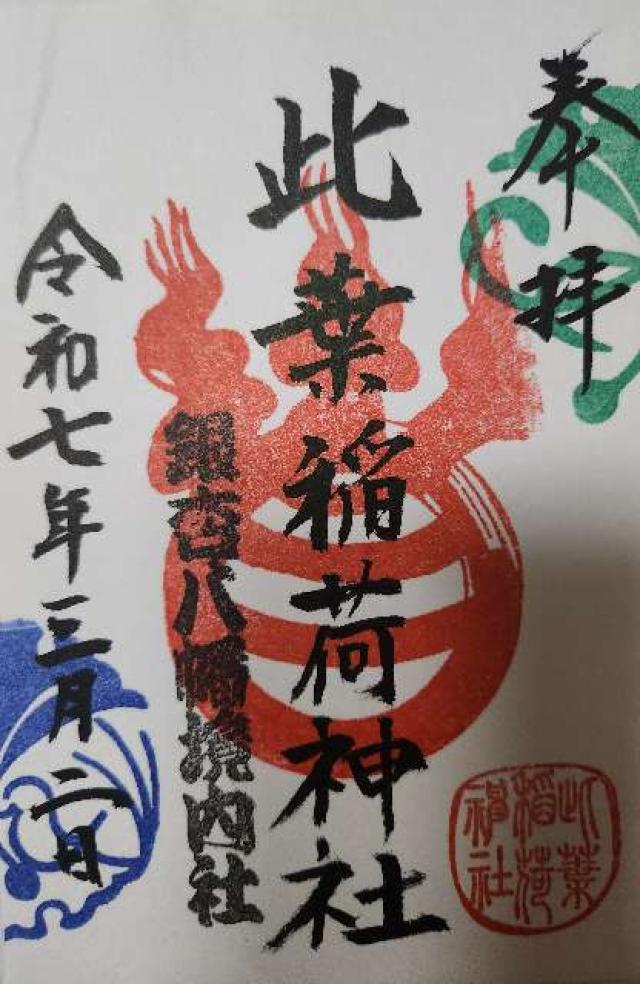 奉拝
此葉稲荷神社
銀杏八幡境内社
令和七年三月二日
此葉
稲荷
神社